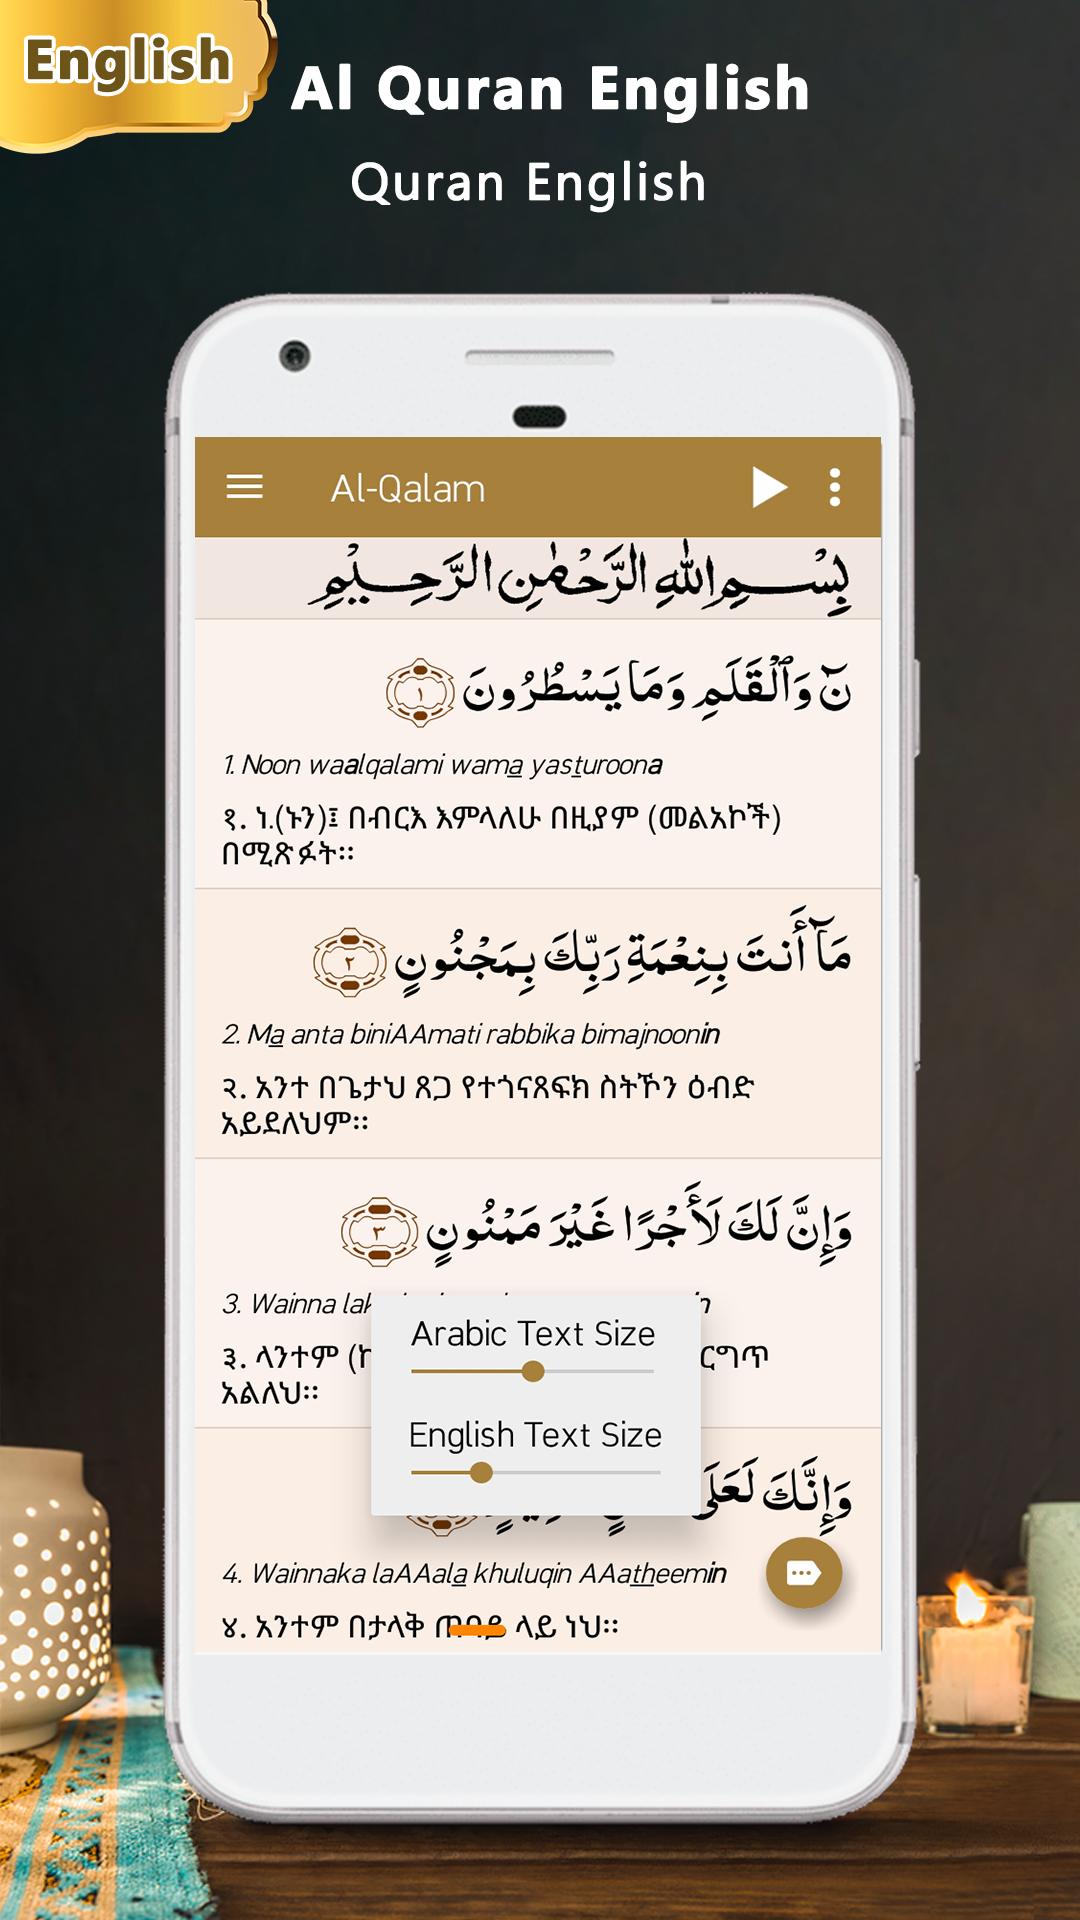 English
Al Quran English
Quran English
Al-Qalam
بِسْمِ اللهِ الرَّحْمٰنِ الرَّحِيْمِ
نٓ وَٱلْقَلَمِ وَمَا يَسْطُرُونَ ١
1. Noon waalqalami wama yasturoona
፩. ነ.(ኑን)፤ በብርእ እምላለሁ በዚያም (መልአኮች)
በሚጽፉት፡፡
مَآ أَنتَ بِنِعْمَةِ رَبِّكَ بِمَجْنُونٍ ٢
2. Ma anta biniAAmati rabbika bimajnoonin
፪. አንተ በጌታህ ጸጋ የተጎናጸፍክ ስትኾን ዕብድ
አይደለህም፡፡
وَإِنَّ لَكَ لَأَجْرًا غَيْرَ مَمْنُونٍ ٣
3. Wainna
፫. ላንተም
አልለህ፡፡
Arabic Text Size
English Text Size
وَإِنَّكَ لَعَلَى
4. Wainnaka laAAala khuluqin AAatheemin
፬. አንተም በታላቅ ላይ ነህ፡፡